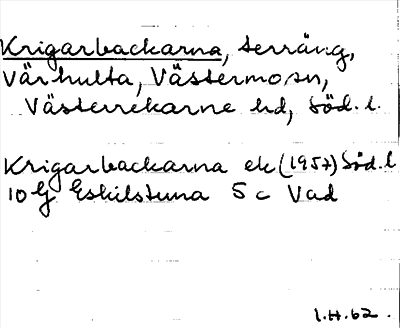 Krigarbackarna, terräng,
Värhulta, Västermo sn,
Västerrekarne hd, Söd. l.
Krigarbackarna ek (1957) Söd. l
10 G Eskilstuna 5 c Vad
1.H.62.